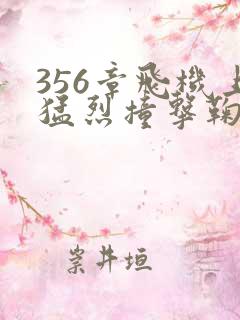 356章飛機上
猛烈撞擊鞠
崇井垣